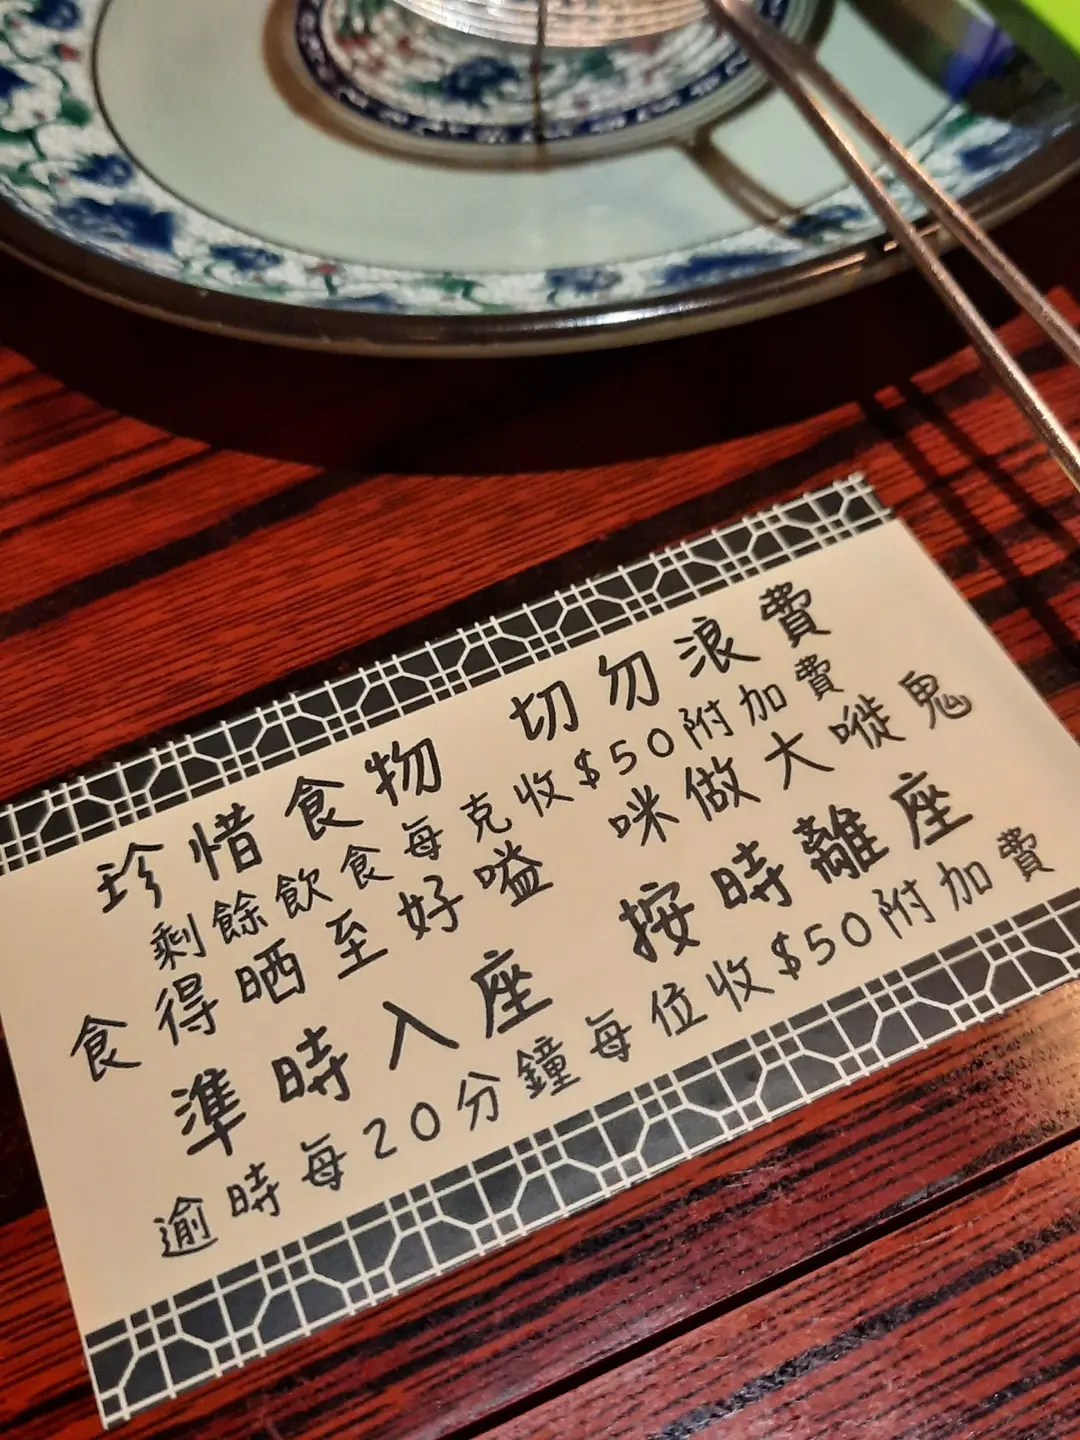 珍惜食物 切勿浪費
剩餘飲食每克收$50附加費
食得晒至好嗌 咪做大嘥鬼
準時入座 按時離座
逾時每20分鐘每位收$50附加費